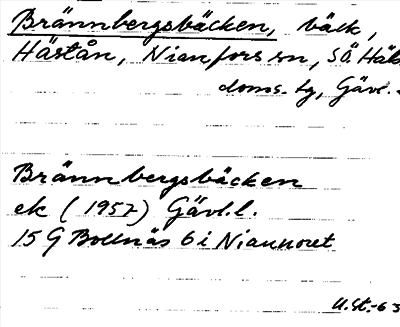 Brännbergsbäcken, bäck,
Hästån, Nianfors sn, SÄ Häl
doms. lg, Gävl.
Brännbergsbäcken
ek (1957) Gävl.l.
15 G Bollnäs 6 i Niannoret
U.St.-63